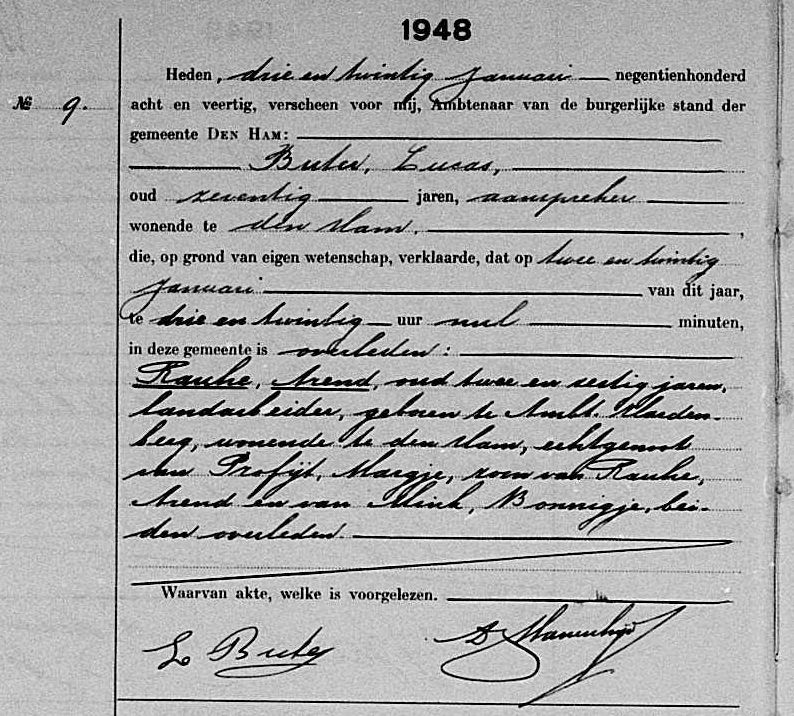 1948
Heden, drie en twintig Januari negentienhonderd
№ 9. acht en veertig, verscheen voor mij, Ambtenaar van de burgerlijke stand der
gemeente DEN HAM:
Buter, Lucas,
oud zeventig jaren, aanspreker
wonende te den Ham,
die, op grond van eigen wetenschap, verklaarde, dat op twee en twintig
Januari van dit jaar,
te drie en twintig uur nul minuten,
in deze gemeente is overleden:
Rauhe, Arend, oud twee en zestig jaren,
landarbeider, geboren te Ambt-Harden-
berg, wonende te den Ham, echtgenoot
van Profijt, Margje, zoon van Rauhe,
Arend en van Mink, Bonnigje, bei-
den overleden.
Waarvan akte, welke is voorgelezen.
L Buter